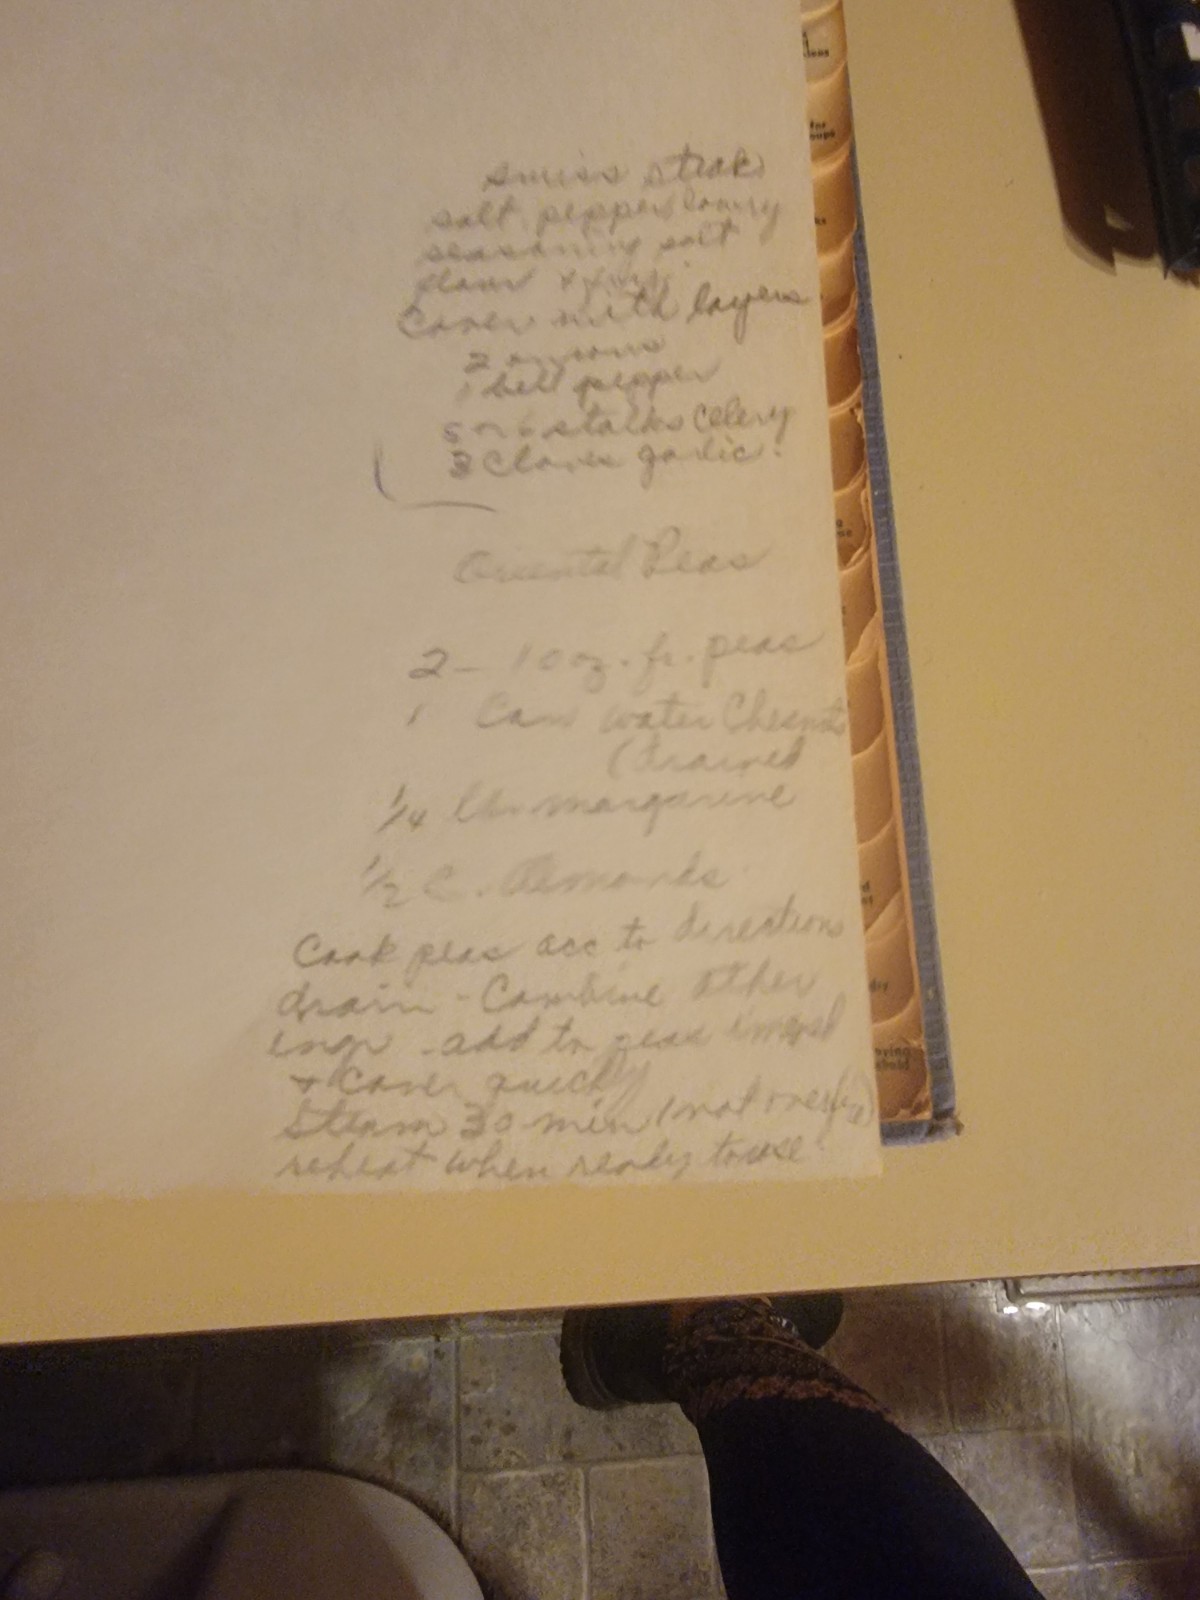 swiss steak
salt, pepper lowry
seasoning salt
flour
Cover with layers
2 onions
1 bell pepper
5 or 6 stalks Celery
3 Cloves garlic.
Oriental Peas
2 - 10 oz. fr. peas
1 Can water Chesnuts
(drained
1/4 lb. margarine
1/2 C. Almonds
Cook peas acc to directions
drain - Combine other
ingr - add to peas
+ Cover quickly
Steam 30 min (not over
reheat when ready to use